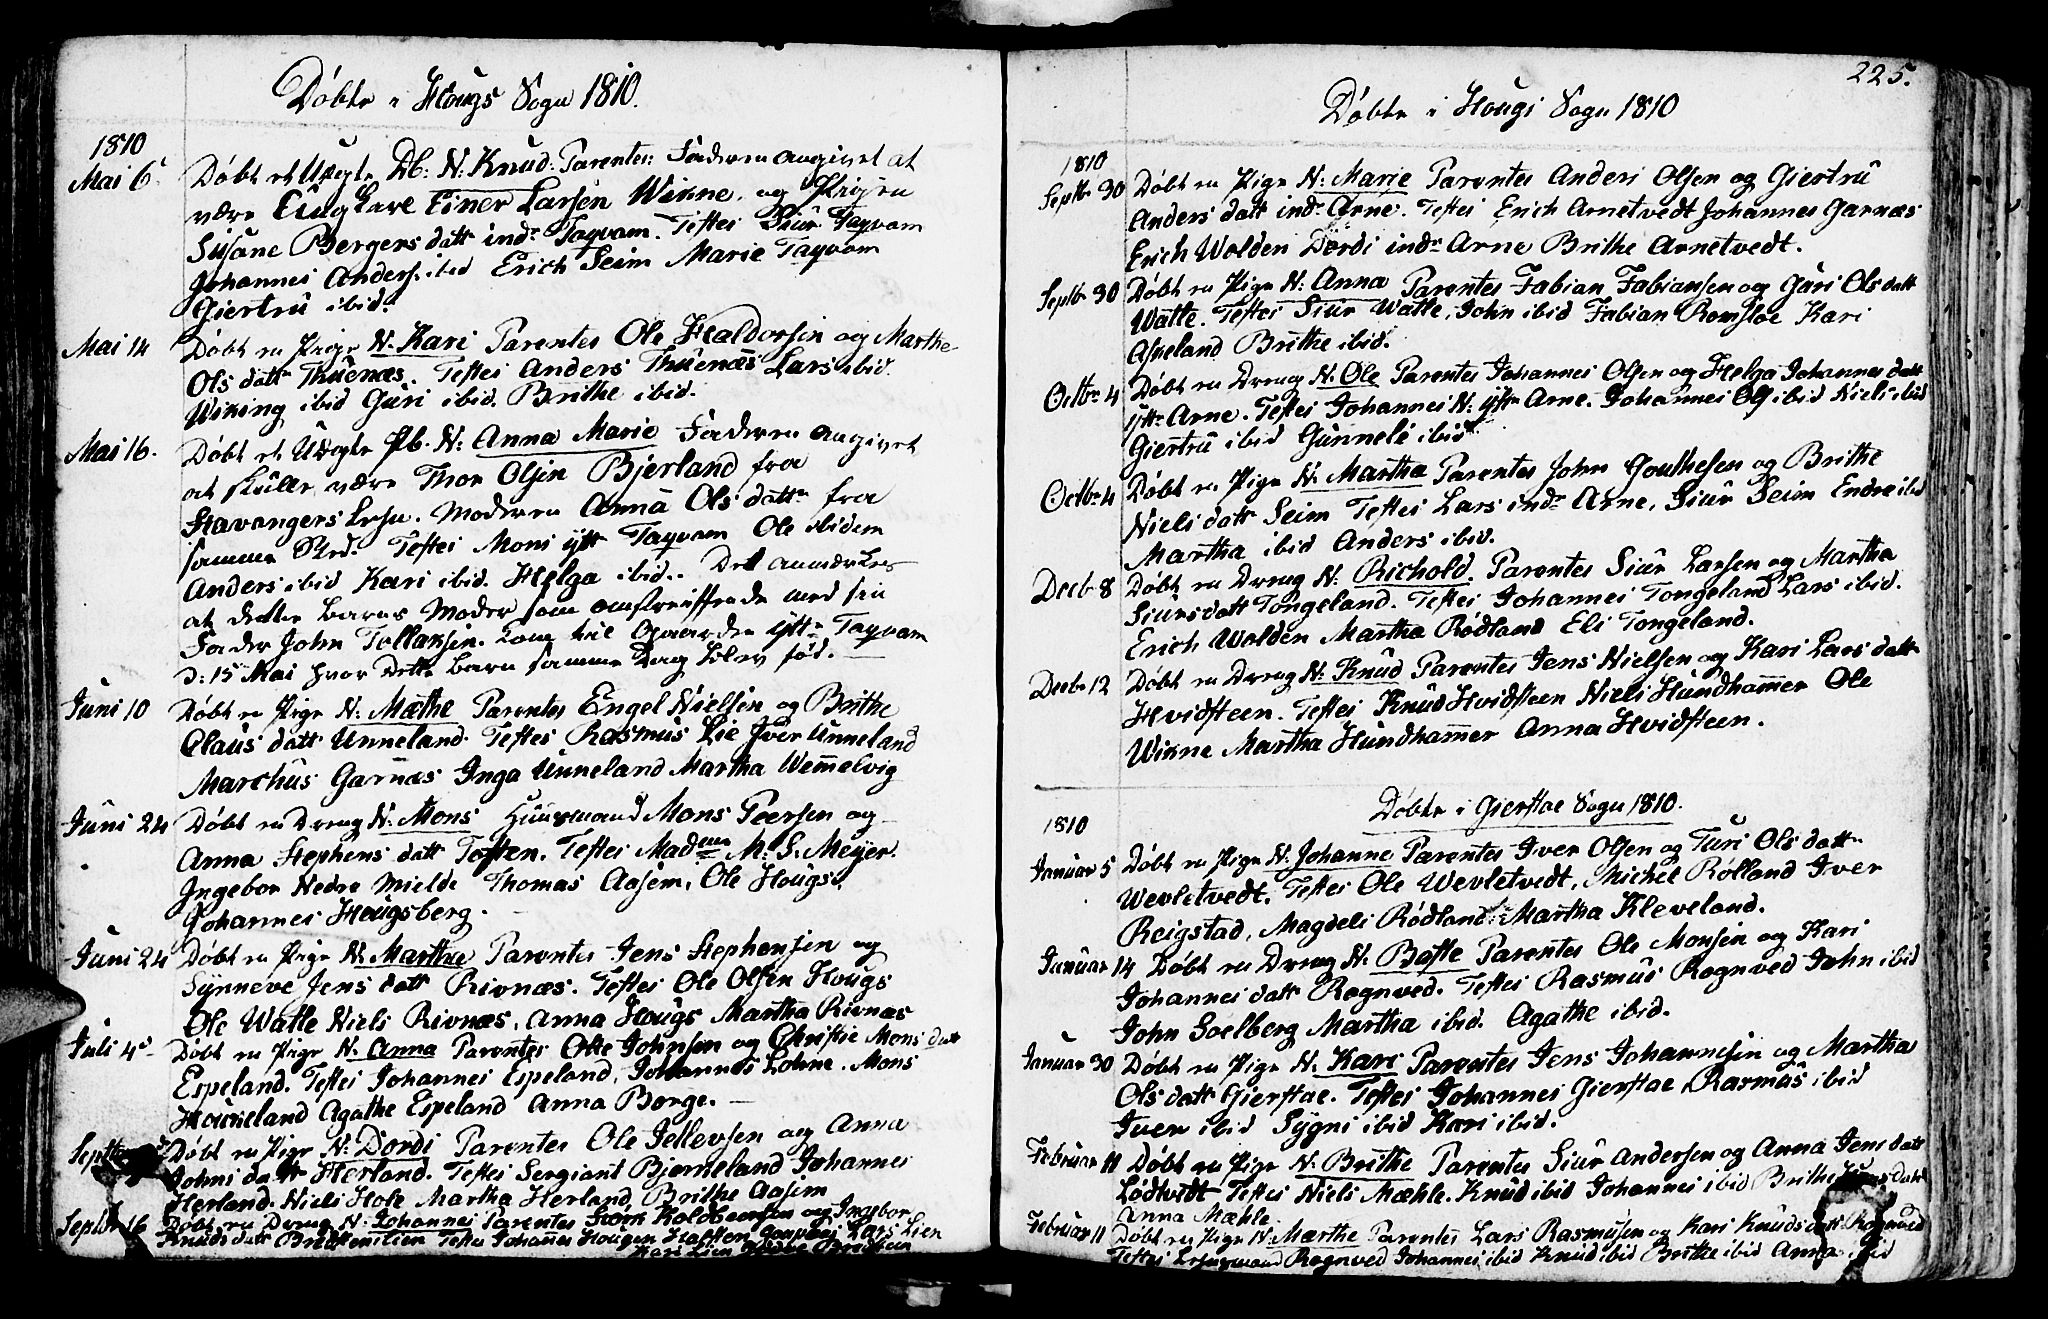 Døbte i Hougs Sogn 1810.
1810
Mai 6. Døbt et Uegte Db. N: Knud: Parentes: Faderen angivet at
være Ungkarl Einer Larsen Wikne, og Pigen
Susane Bergers datt indr Tayvam. Testes Siur Tayvam
Johannes Anders. ibid Erich Seim Marie Tayvam
Giertru ibid.
Mai 14 Døbt en Pige N. Kari Parentes Ole Haldorsen og Marthe
Ols datr Thuenæs. Testes Anders Thuenæs Lars ibid.
Wiking ibid Guri ibid. Brithe ibid.
Mai 16. Døbt et Uegte Pb. N: Anna Marie Faderen angivet
at skulle være Thor Olsen Bjerland fra
Stavangers Lehn. Moderen Anna Ols datr fra
samme Sted. Testes Mons ytt Tayvam Ole ibidem
Anders ibid Kari ibid. Helga ibid.. Det anmærkes
at dette Barns Moder som omstreiffende med sin
Fader John Tollaksen. kom til Gaarden yttr Tayvam
d: 15 Mai hvor dette barn samme Dag blev fød.
Juni 10 Døbt en Pige N: Mæthe Parentes Engel Nielsen og Brithe
Olaus datt Unneland. Testes Rasmus Lie Iver Unneland
Marchus Garnæs Inga Unneland Martha Wemmelvig
Juni 24 Døbt en Dreng N. Mons Huusmand Mons Peersen og
Anna Stephens datt Toften. Testes Madme M. S. Meyer.
Ingebor Nedre Mielde Thomas Aasem. Ole Hougs.
Johannes Hougsberg.
Juni 24 Døbt en Pige N. Marthe Parentes Jens Stephensen og
Synneve Jens datt Rivnæs. Testes Ole Olsen Hougs
Ole Watle Niels Rivnæs. Anna Hougs Martha Rivnæs
Juli 4. Døbt en Pige N. Anna Parentes Olle Johnsen og Christie Mons datt
Espeland. Testes Johannes Espeland, Johannes Lohne. Mons
Houneland Agathe Espeland Anna Borge.
Septbr Døbt en Pige N: Dordi Parentes Ole Jellevsen og Anna
Johns datr Herland. Testes Sergiant Bjørneland Johannes
Herland. Niels Hole Martha Herland Brithe Aasem
Septbr 16 Døbt en Dreng N. Johannes Parentes Størk Koldbensen og Ingebor
Knuds datt Testes Johannes Hougen Lars Lien
Kari Lien
225.
Døbte i Hougs Sogn 1810
1810
Septbr 30 Døbt en Pige N: Marie Parentes Anders Olsen og Giertru
Anders datt indr Arne. Testes Erich Arnetvedt Johannes Garnæs
Erich Wolden Dordi indr Arne Brithe Arnetvedt.
Septbr 30 Døbt en Pige N: Anna Parentes Fabian Fabiansen og Guri Ols datt
Watle. Testes Siur Watle. John ibid Fabian Romsloe Kari
Asneland Brithe ibid.
Octbr 4 Døbt en Dreng N. Ole Parentes Johannes Olsen og Helga Johannes datt
yttr Arne. Testes Johannes N: yttr Arne. Johannes Ols ibid Niels ibid
Giertru ibid Gunnele ibid
Octbr 4 Døbt en Pige N: Martha Parentes John Gouthesen og Brithe
Niels datt Seim Testes Lars indr Arne, Siur Seim Endre ibid
Martha ibid Anders ibid.
Decb. 8 Døbt en Dreng N. Richold. Parentes Siur Larsen og Martha
Siursdatt Tongeland. Testes Johannes Tongeland Lars ibid.
Erich Wolden Martha Rødland Eli Tongeland.
Decb. 12 Døbt en Dreng N. Knud Parentes Jens Nielsen og Kari Lars datt
Hvidsteen. Testes Knud Hvidsteen Niels Hundhammer Ole
Wikne Martha Hundhammer Anna Hvidsteen.
Døbte i Gierstae Sogn 1810.
1810
Januar 5 Døbt en Pige N. Johanne Parentes Iver Olsen og Turi Ols datr
Wevletvedt. Testes Ole Wevletvedt, Michel Rølland Iver
Reigstad, Magdeli Rødland. Martha Kleveland.
Januar 14 Døbt en Dreng N. Bofte Parentes Ole Monsen og Kari
Johannes datr Rognved. Testes Rasmus Rognved John ibid
John Soelberg Martha ibid. Agathe ibid.
Januar 30 Døbt en Pige N. Kari Parentes Jens Johannesen og Martha
Ols datt Gierstae. Testes Johannes Gierstae Rasmus ibid
Iver ibid Sygni ibid Kari ibid.
Februar 11 Døbt en Pige N. Brithe Parentes Siur Andersen og Anna Jens datt
Lødtvedt Testes Niels Mæhle. Knud ibid Johannes ibid Brithe datt
Anna Mæhle
Februar 11 Døbt en Pige N. Mærthe Parentes Lars Rasmusen og Kari Knuds datt Rognved
Testes Rognved Johannes ibid Knud ibid Brithe ibid Anna ibid